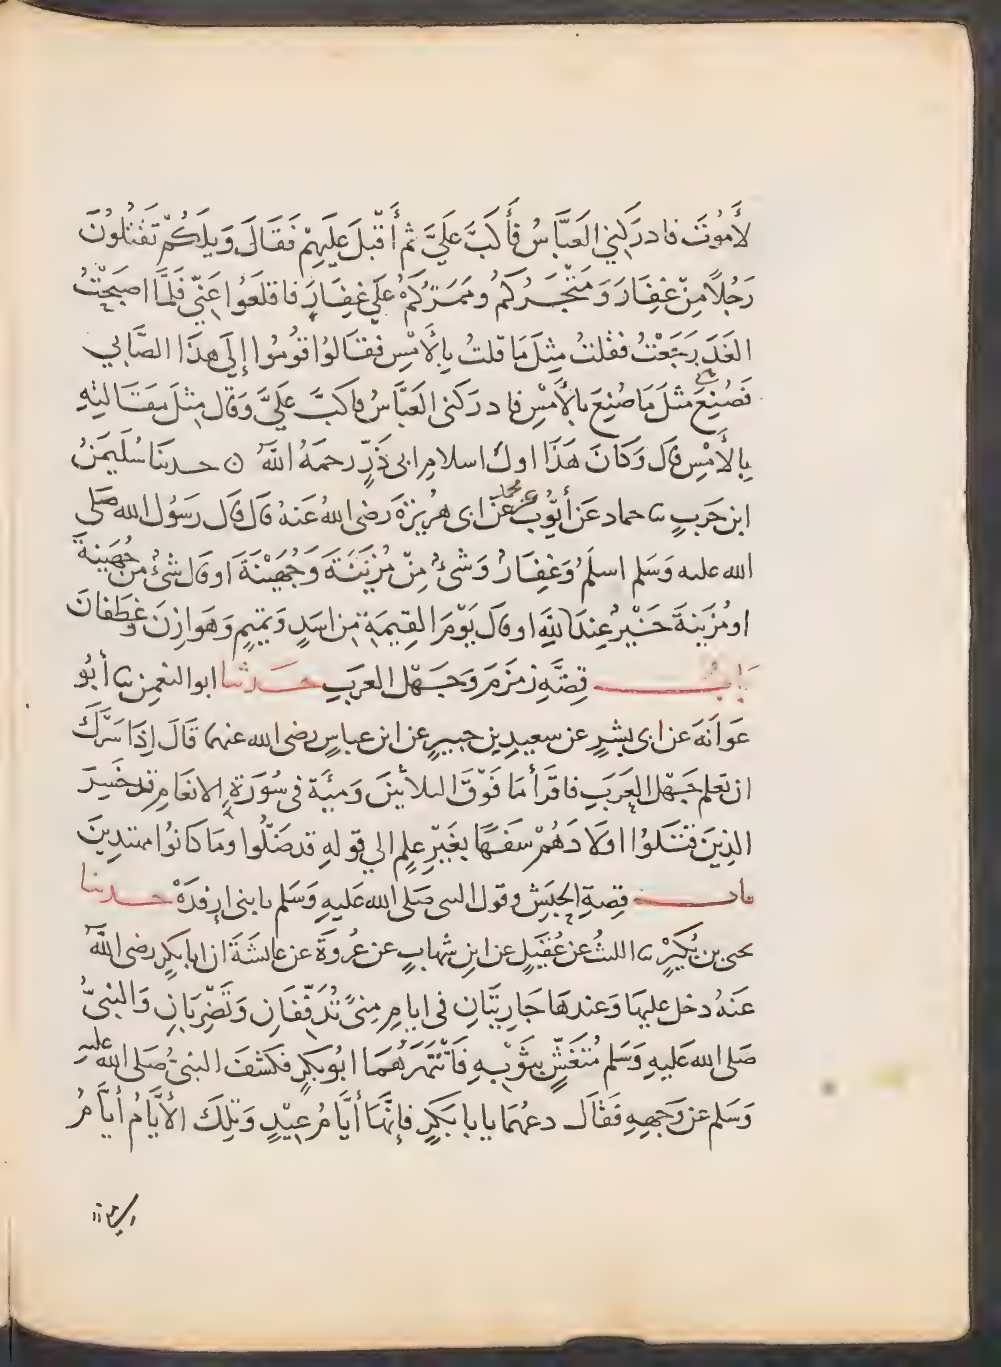 لأَمُوتَ فادركني العَبَّاسُ فَأَكَبَّ عَلَيَّ ثم أَقْبَلَ عَلَيهِمْ فَقَالَ وَيلَكُمْ تَقْتُلُونَ
رَجُلاً مِنْ غِفَارَ وَمَتْجَرُكُمْ وممَرُّكُمْ عَلَي غِفَارَ فاقلَعُوا عَنّي فَلَمَّا اصبَحْتُ
الغَدَ رَجَعْتُ فقلتُ مِثلَ مَا قلتُ بِالأَمْسِ فقالوُا قوُموُا إِلَى هذَا الصَّابي
فَصُنِعَ مثلَ مَا صُنِعَ بالأَمْسِ فادركنى العَبَّاسُ فاكبَّ عَلَيَّ وَقال مِثلَ مَقَالتِهِ
بِالأَمْسِ قال وَكانَ هَذَا اول اسلامِ ابى ذَرٍّ رحمَهُ اللهُ ه حدثنا سُلَيمنُ
ابن حَربٍ نا حماد عَن أَيّوُبَ عن محمد عَن ابى هُرَيْرَةَ رَضى اللهُ عَنهُ قال قال رَسُولُ الله صَلى
الله عليه وَسَلم اسلَمُ وَغِفَارُ وَشَىْءٌ مِنْ مُزَيْنَةَ وَجُهَيْنَةَ اوقال شىْءٌ منْ جُهَينةَ
اومُزَينةَ خَيْرٌ عِندَ اللهِ اوقال يَوْمَ القِيمَةِ مِن اسَدٍ وَتميمٍ وَهَوازِنَ وَغَطَفانَ
بابُ قِصَّةِ زمزَمَ وَجَهْلِ العَرَبِ حدثنا ابوا النعمن نا أبُو
عَوانَةَ عَن ابى بشرٍ عن سعيدِ بنِ جبيرٍ عن ابن عباسٍ رضى الله عنهما قَالَ إِذَا سَرَّكَ
ان تعلم جَهْلَ العَرَبِ فاقرَأ مَا فَوْقَ الثلاثينَ وَمِئَةِ فى سُورَةِ الانعَامِ قد خَسِرَ
الذِينَ قتَلوُا اولادَهُمْ سَفَهًا بغَيْرِ عِلمٍ الي قولهِ قد ضَلّوُا وَمَا كانوُا مهتدِينَ
باب قِصةِ الحبَشِ وقول النبى صَلى الله عَليهِ وَسَلم يابنى ارفِدَةْ حدثنا
يحيى بن بُكَيْرٍ نا الليثُ عَن عُقَيلٍ عن ابنِ شهابٍ عَن عُروَةَ عَن عَائشَةَ ان ابا بكرٍ رضى اللهُ
عَنهُ دخل عليهَا وَعندهَا جَارِيَتَانِ فى ايامِ مِنىً تُدَفّفَانِ وَتَضْرِبَانِ وَالنبىُّ
صَلى الله عَليهِ وَسَلم مُتَغَشٍّ بِثَوْبِهِ فَانْتَهَرَهُمَا ابُوبَكرٍ فكشفَ النبىُّ صَلى الله عَليهِ
وَسَلم عن وَجهِهِ فَقَالَ دعهُمَا يا بابَكرٍ فإنهَا أيَّامُ عيْدٍ وَتِلكَ الأَيَّامُ أَيّامُ